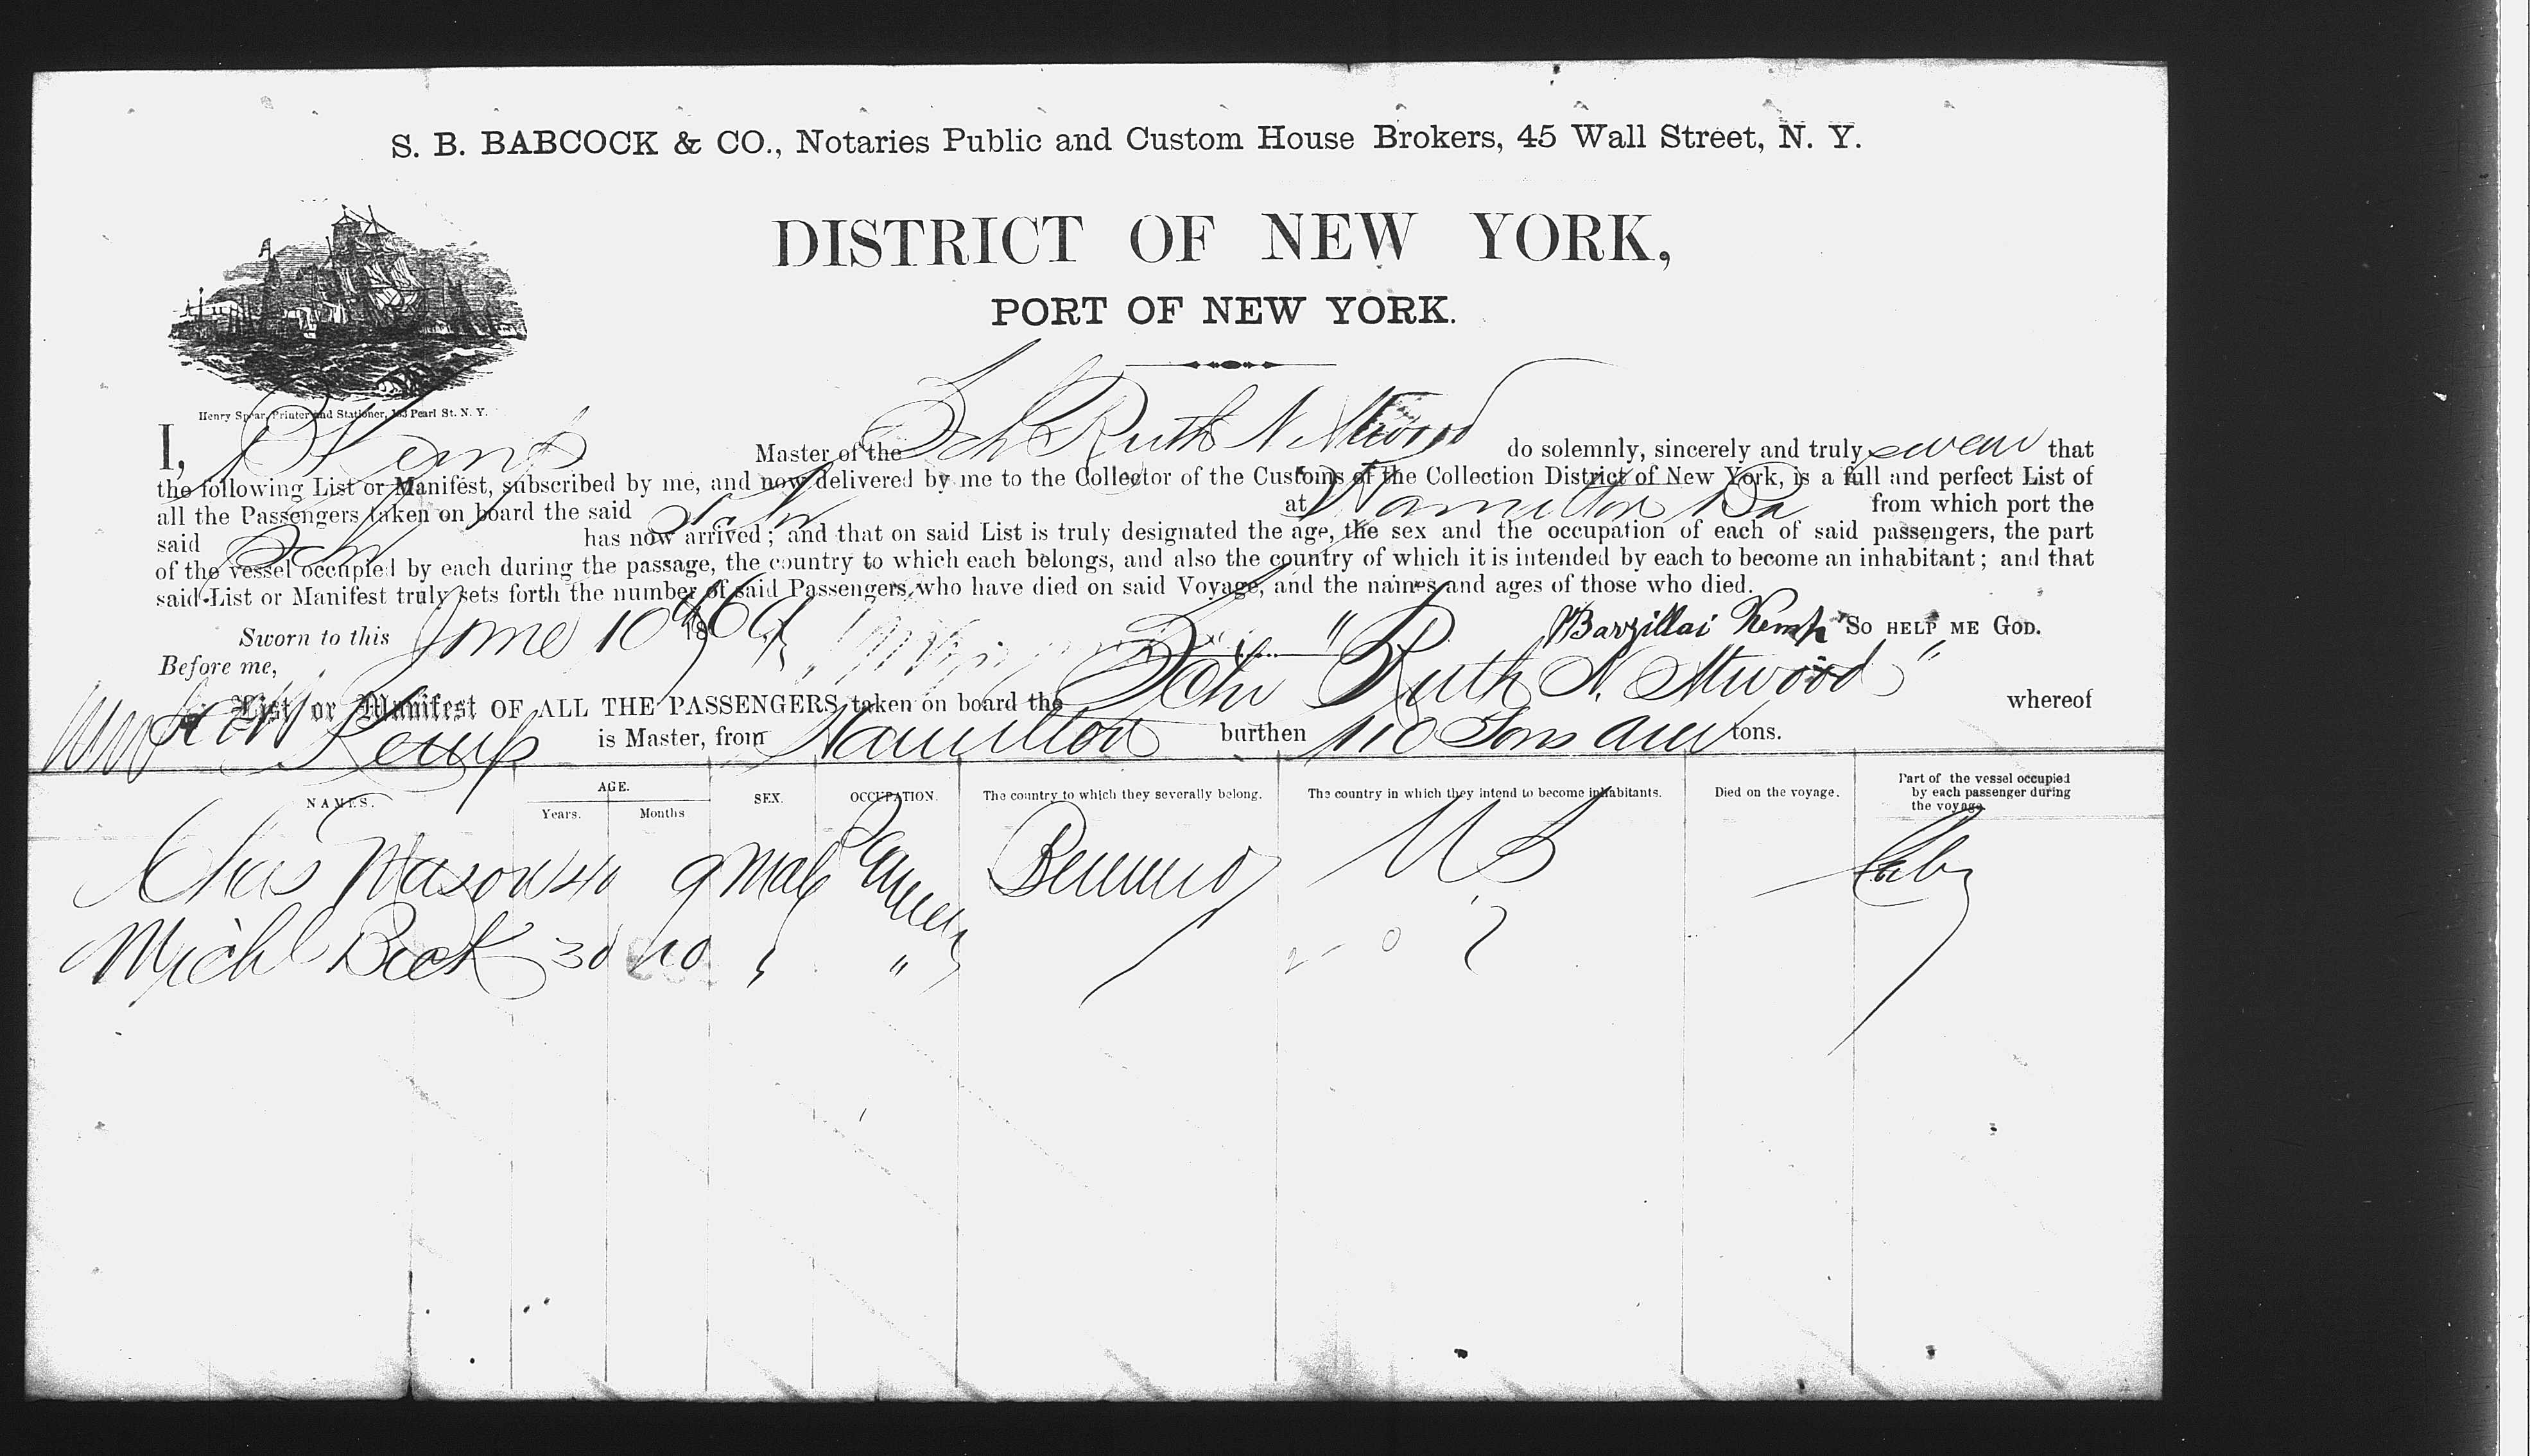 S. B. BABCOCK & CO., Notaries Public and Custom House Brokers, 45 Wall Street, N. Y.
DISTRICT OF NEW YORK,
PORT OF NEW YORK.
Henry Spear, Printer and Stationer, 133 Pearl St. N. Y.
I, B Kemp Master of the Sch Ruth N Atwood do solemnly, sincerely and truly swear that
the following List or Manifest, subscribed by me, and now delivered by me to the Collector of the Customs of the Collection District of New York, is a full and perfect List of
all the Passengers taken on board the said Sch at Hamilton Ba from which port the
said Sch has now arrived; and that on said List is truly designated the age, the sex and the occupation of each of said passengers, the part
of the vessel occupied by each during the passage, the country to which each belongs, and also the country of which it is intended by each to become an inhabitant; and that
said List or Manifest truly sets forth the number of said Passengers who have died on said Voyage, and the names and ages of those who died.
Sworn to this June 10 1869 Barzillai Kemp SO HELP ME GOD.
Before me,
List or Manifest OF ALL THE PASSENGERS taken on board the Schr "Ruth N. Atwood" whereof
Kemp is Master, from Hamilton burthen 110 Tons tons.
NAMES. AGE. Years. Months SEX. OCCUPATION. The country to which they severally belong. The country in which they intend to become inhabitants. Died on the voyage. Part of the vessel occupied by each passenger during the voyage.
Chas Mason 40 9 Male Bermuda U S
Michl Beck 30 10 "